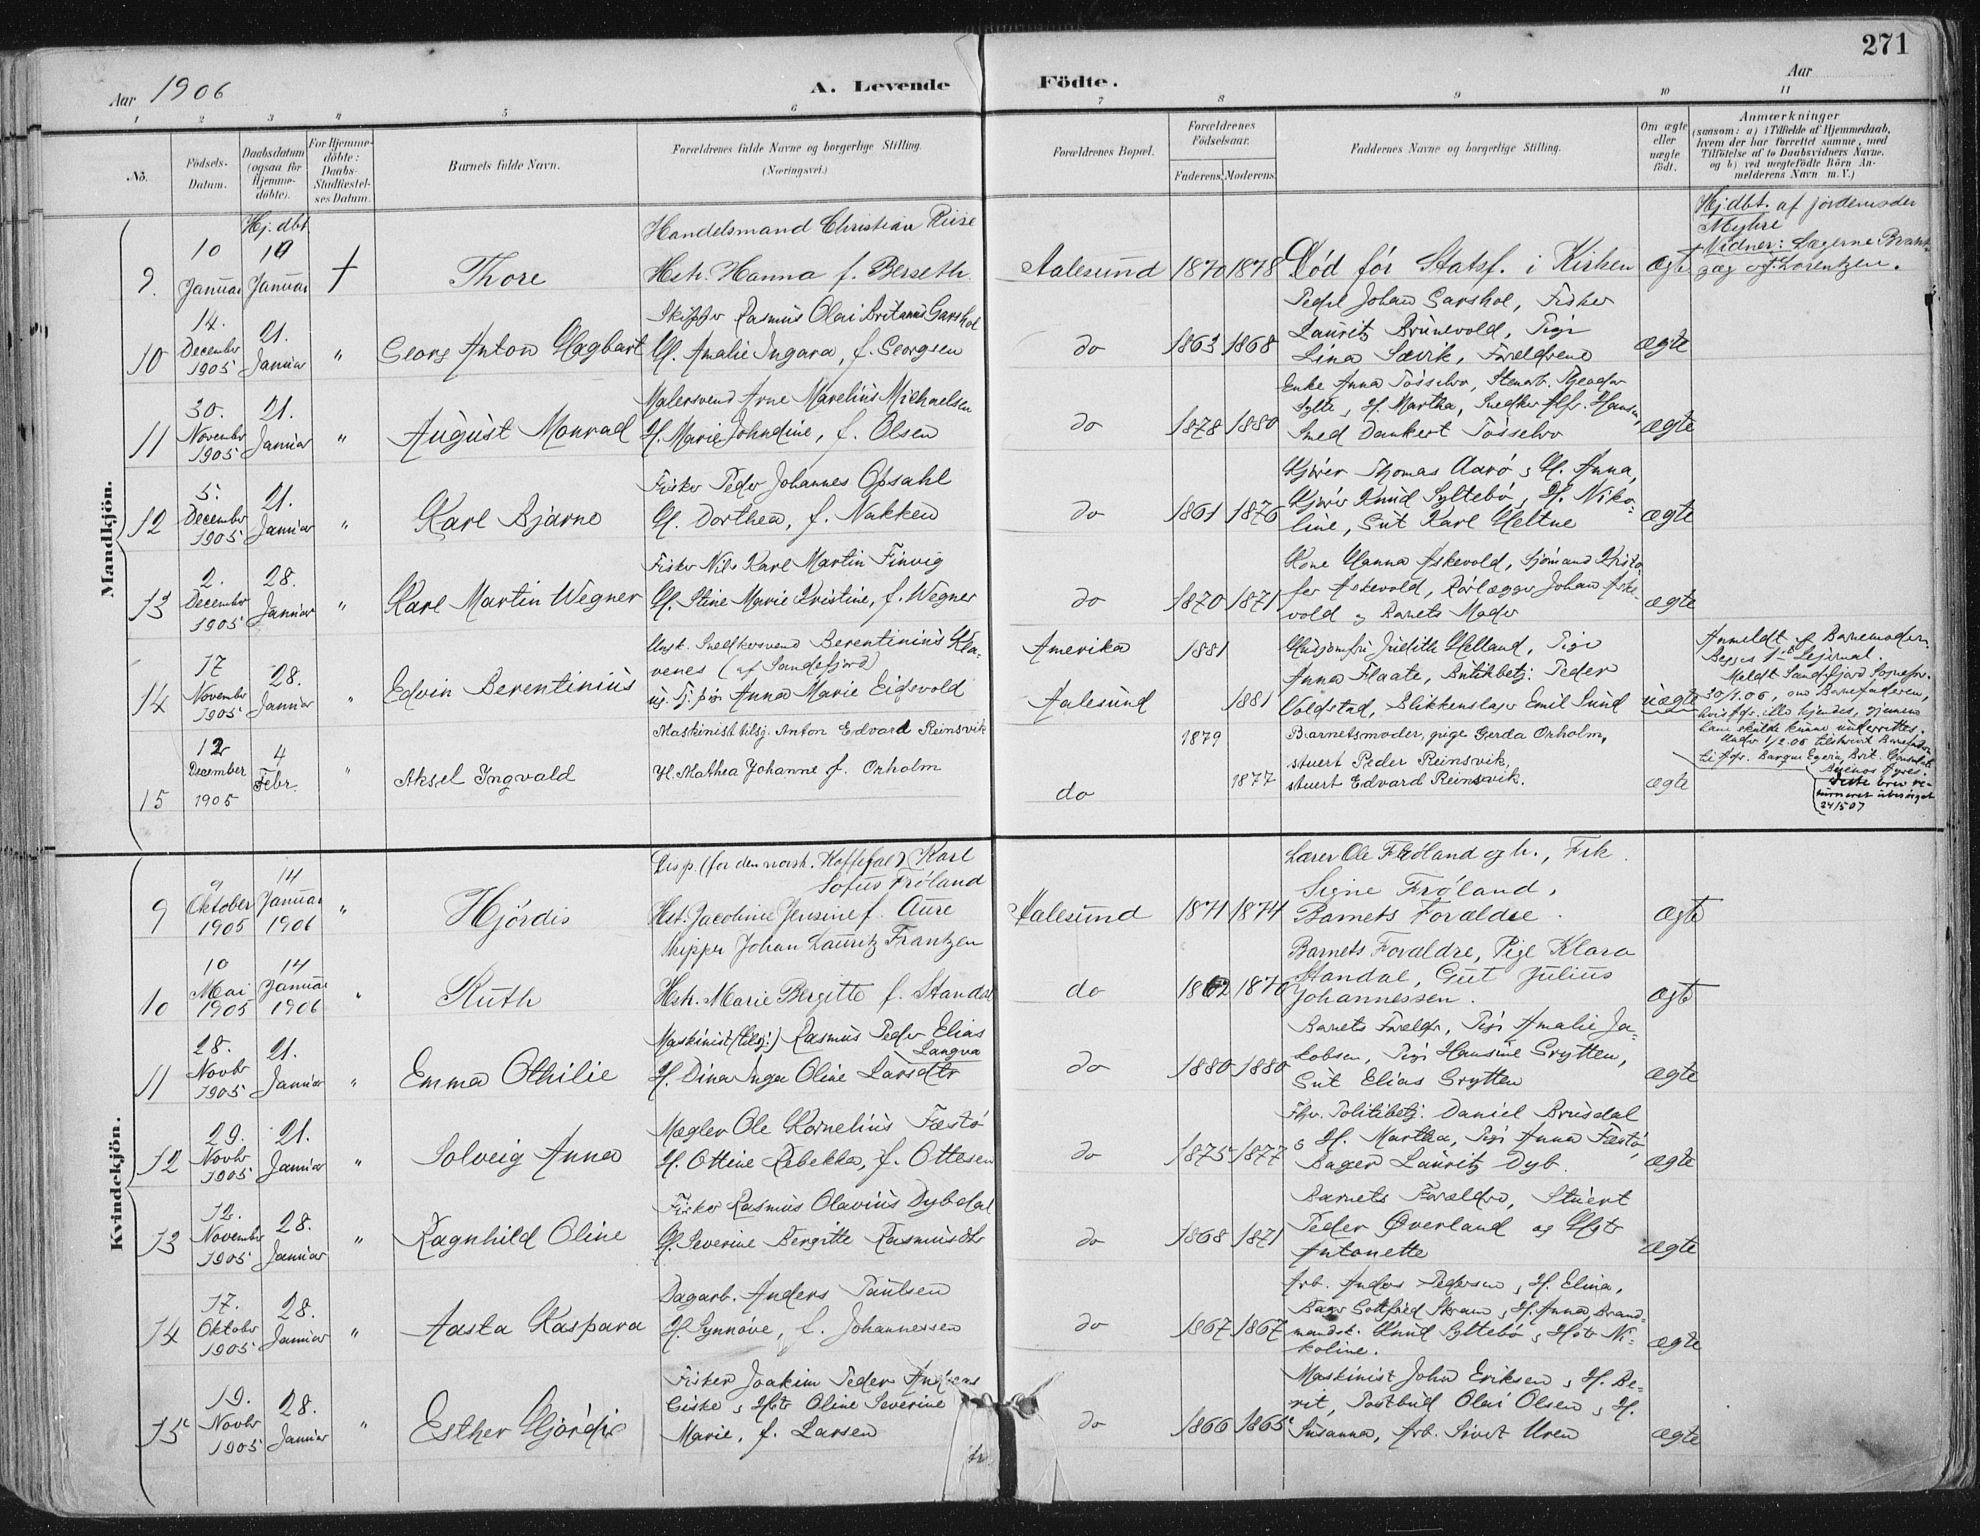 271
Aar 1906
A. Levende Födte.
Aar
1 2 3 4 5 6 7 8 9 10 11
No.
Födsels-Datum.
Daabsdatum (ogsaa för Hjemme-döbte).
For Hjemme-döbte: Daabs-Stadfæstel-ses Datum.
Barnets fulde Navn.
Forældrenes fulde Navne og borgerlige Stilling. (Næringsvei.)
Forældrenes Bopæl.
Forældrenes Födselsaar.
Faderens. Moderens.
Faddernes Navne og borgerlige Stilling.
Om ægte eller uægte födt.
Anmærkninger
(saasom: a) i Tilfælde af Hjemmedaab, hvem der har forrettet samme, med Tilföielse af to Daabsvidners Navne, og b) ved uægtefödte Börn Anmelderens Navn m. V.)
Mandkjön.
Hj. dbt.
9. 10 Januar 10 Januar + Thore
Handelsmand Christian Riise
Hstr. Hanna f. Berseth
Aalesund 1870 1878 Död før Statsf. i Kirken ægte
Hj. dbt. af jordemoder
Myhre
Vidner: Lægerne
og Lorentzen.
10 14. December 1905 21. Januar " Georg Anton Hagbart
Skipper Rasmus Olai Britanus Garshol
H. Amalie Ingara, f. Georgsen
do 1863 1868
Peder Johan Garshol, Fisker
Lauritz Brunevold, Pige
Lina Sævik, Foreldrene
ægte
11 30. Novembr 1905 21. Januar " August Monrad
Malersvend Arne Marelius Michaelsen
H. Marie Johndine, f. Olsen
do 1878 1880
Enke Anna Tösselvo, Stenarb. Theodor
Sylte, H. Martha, Snedker Alfr. Hansen,
Smed Dankert Tösselvo
ægte
12 5. Decembr 1905 21. Januar " Karl Bjarne
Fisker Peder Johannes Opsahl
H. Dorthea, f. Nakken
do 1861 1876
Kjörer Thomas Aarö, H. Anna,
Kjörer Knud Syltebö, H. Niko-
line, Gut Karl Heltne
ægte
13 2. December 1905 28. Januar " Karl Martin Wegner
Fisker Nils Karl Martin Finvig
H. Stine Marie Kristine, f. Wegner
do 1870 1871
Kone Hanna Askevold, Sjömand Kristo-
fer Askevold, Rörlægger Johan Aske-
vold, Barnets Moder
ægte
14 17 Novembr 1905 28. Januar " Edvin Berentinius
Ungk. Snedkersvend Berentinius Kla-
venes (af Sandefjord)
ug. Tj. pige Anna Marie Eidsvold
Amerika 1881
Aalesund 1881
Husjomfru Judith Helland, Pige
Anna Flaate, Butikbetj. Peder
Voldstad, Blikkenslager Emil Lund
uægte
Anmeldt af Barnemoderen.
Begges 1ste Lejermal.
Meldt Sandefjord Sognepr.
30/1.06, om Barnefaderen,
Under 1/2.06 tilskrevet Barnefaderen
Buenos Ayres.
Dette brev re-
turneret ubesörget
24/5 07
15 12 December 1905 4 Febr. " Aksel Ingvald
Maskinist tilsj. Anton Edvard Reinsvik
H. Mathea Johanne f. Orholm
do 1879 1877
Barnetsmoder, pige Gerda Orholm,
stuert Peder Reinsvik,
stuert Edvard Reinsvik.
ægte
Kvindekjön.
9 9 Oktober 1905 14 Januar 1906 " Hjördis
Disp. (for den norsk. Kaffefæl.) Karl
Sofus Fröland
Hst. Jacobine Jensine f. Aure
Aalesund 1871 1874
Lærer Ole Frøland og h., Frk.
Signe Frøland,
Barnets Forældre.
ægte
10 10 Mai 1905 14 Januar 1906 " Ruth
Skipper Johan Lauritz Frantzen
Hstr. Marie Bergitte f. Standal
do 1862 1870
Barnets Forældre, Pige Klara
Standal, Gut Julius
Johannessen.
ægte
11 28. Novbr 1905 21. Januar " Emma Othilie
Maskinist (tilsj:) Rasmus Peder Elias
Langva
H. Dina Inga Oline Larsdtr
do 1880 1880
Barnets Foreldr, Pige Amalie Ja-
kobsen, Pige Hansine Grytten,
Gut Elias Grytten
ægte
12 29. Novbr 1905 21. Januar " Solveig Anna
Mægler Ole Kornelius Fæstö
H. Ottine Rebekka, f. Ottesen
do 1875 1877
Fhv. Politibetj. Daniel Brusdal
H. Martha, Pige Anna Fæstö,
Bager Lauritz Dyb.
ægte
13 12. Novembr 1905 28. Januar " Ragnhild Oline
Fisker Rasmus Olavius Dybdal
H. Severine Bergitte Rasmusdtr
do 1868 1871
Barnets Forældre, Stuert
Peder Överland og Hstr
Antonette
ægte
14 17. Oktobr 1905 28. Januar " Aasta Kaspara
Dagarb. Anders Paulsen
H. Synnöve, f. Johannessen
do 1867 1867
Arb. Anders Pedersen, H. Elina,
Bager Gottfried Skram, H. Anna, Brand-
mandsk. Knud Syltebö, Hstr Ni-
koline.
ægte
15 19. Novbr 1905 28. Januar " Esther Hjördis
Fisker Joakim Peder Andreas
Giske, Hstr Oline Severine
Marie, f. Larsen
do 1866 1865
Maskinist John Eriksen, H. Be-
rit, Postbud Olai Olsen, H.
Susanna, Arb. Sivert Uren
ægte